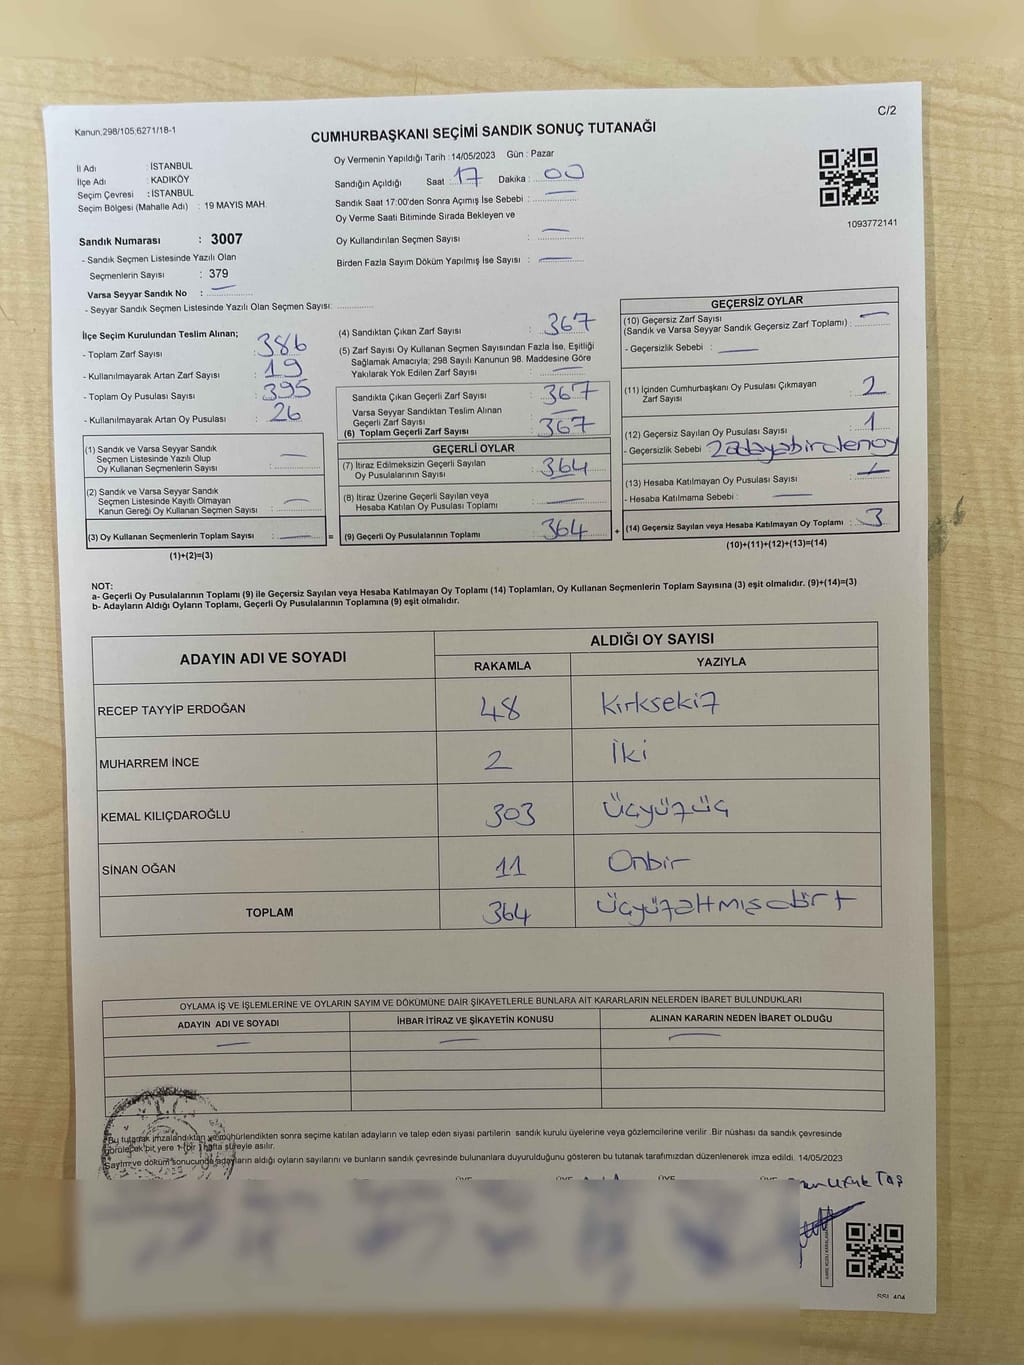 Kanun.298/105;6271/18-1
C/2
CUMHURBAŞKANI SEÇİMİ SANDIK SONUÇ TUTANAĞI
İl Adı : İSTANBUL
İlçe Adı : KADIKÖY
Seçim Çevresi : İSTANBUL
Seçim Bölgesi (Mahalle Adı) : 19 MAYIS MAH.
Sandık Numarası : 3007
- Sandık Seçmen Listesinde Yazılı Olan
Seçmenlerin Sayısı : 379
Varsa Seyyar Sandık No :
- Seyyar Sandık Seçmen Listesinde Yazılı Olan Seçmen Sayısı:
Oy Vermenin Yapıldığı Tarih : 14/05/2023 Gün : Pazar
Sandığın Açıldığı Saat : 17 Dakika : 00
Sandık Saat 17:00'den Sonra Açımış İse Sebebi :
Oy Verme Saati Bitiminde Sırada Bekleyen ve
Oy Kullandırılan Seçmen Sayısı :
Birden Fazla Sayım Döküm Yapılmış İse Sayısı :
1093772141
İlçe Seçim Kurulundan Teslim Alınan;
- Toplam Zarf Sayısı : 386
- Kullanılmayarak Artan Zarf Sayısı : 19
- Toplam Oy Pusulası Sayısı : 395
- Kullanılmayarak Artan Oy Pusulası : 26
(1) Sandık ve Varsa Seyyar Sandık
Seçmen Listesinde Yazılı Olup
Oy Kullanan Seçmenlerin Sayısı :
(2) Sandık ve Varsa Seyyar Sandık
Seçmen Listesinde Kayıtlı Olmayan
Kanun Gereği Oy Kullanan Seçmen Sayısı :
(3) Oy Kullanan Seçmenlerin Toplam Sayısı : =
(1)+(2)=(3)
(4) Sandıktan Çıkan Zarf Sayısı : 367
(5) Zarf Sayısı Oy Kullanan Seçmen Sayısından Fazla İse, Eşitliği
Sağlamak Amacıyla; 298 Sayılı Kanunun 98. Maddesine Göre
Yakılarak Yok Edilen Zarf Sayısı :
Sandıkta Çıkan Geçerli Zarf Sayısı : 367
Varsa Seyyar Sandıktan Teslim Alınan
Geçerli Zarf Sayısı :
(6) Toplam Geçerli Zarf Sayısı : 367
GEÇERLİ OYLAR
(7) İtiraz Edilmeksizin Geçerli Sayılan
Oy Pusulalarının Sayısı : 364
(8) İtiraz Üzerine Geçerli Sayılan veya
Hesaba Katılan Oy Pusulası Toplamı :
(9) Geçerli Oy Pusulalarının Toplamı : 364 +
GEÇERSİZ OYLAR
(10) Geçersiz Zarf Sayısı
(Sandık ve Varsa Seyyar Sandık Geçersiz Zarf Toplamı) :
- Geçersizlik Sebebi :
(11) İçinden Cumhurbaşkanı Oy Pusulası Çıkmayan
Zarf Sayısı : 2
(12) Geçersiz Sayılan Oy Pusulası Sayısı : 1
- Geçersizlik Sebebi : 2adayabirdenoy
(13) Hesaba Katılmayan Oy Pusulası Sayısı :
- Hesaba Katılmama Sebebi :
(14) Geçersiz Sayılan veya Hesaba Katılmayan Oy Toplamı : 3
(10)+(11)+(12)+(13)=(14)
NOT:
a- Geçerli Oy Pusulalarının Toplamı (9) ile Geçersiz Sayılan veya Hesaba Katılmayan Oy Toplamı (14) Toplamları, Oy Kullanan Seçmenlerin Toplam Sayısına (3) eşit olmalıdır. (9)+(14)=(3)
b- Adayların Aldığı Oyların Toplamı, Geçerli Oy Pusulalarının Toplamına (9) eşit olmalıdır.
ADAYIN ADI VE SOYADI
ALDIĞI OY SAYISI
RAKAMLA YAZIYLA
RECEP TAYYİP ERDOĞAN 48 Kırksekiz
MUHARREM İNCE 2 İki
KEMAL KILIÇDAROĞLU 303 Üçyüzüç
SİNAN OĞAN 11 Onbir
TOPLAM 364 Üçyüzaltmışdört
OYLAMA İŞ VE İŞLEMLERİNE VE OYLARIN SAYIM VE DÖKÜMÜNE DAİR ŞİKAYETLERLE BUNLARA AİT KARARLARIN NELERDEN İBARET BULUNDUKLARI
ADAYIN ADI VE SOYADI İHBAR İTİRAZ VE ŞİKAYETİN KONUSU ALINAN KARARIN NEDEN İBARET OLDUĞU
Bu tutanak imzalandıktan ve mühürlendikten sonra seçime katılan adayların ve talep eden siyasi partilerin sandık kurulu üyelerine veya gözlemcilerine verilir. Bir nüshası da sandık çevresinde
görülecek bir yere 1 (bir) hafta süreyle asılır.
Sayım ve döküm sonucunda adayların aldığı oyların sayılarını ve bunların sandık çevresinde bulunanlara duyurulduğunu gösteren bu tutanak tarafımızdan düzenlenerek imza edildi. 14/05/2023
Ufuk Taş